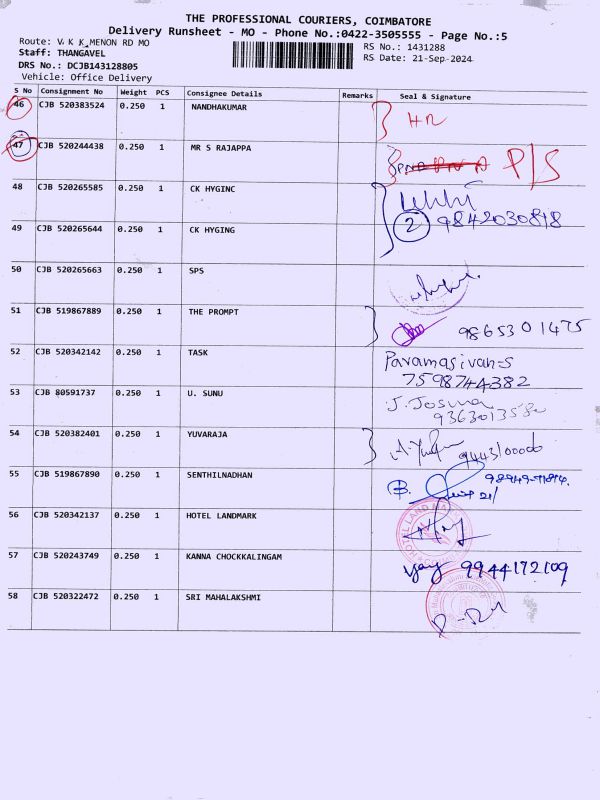 THE PROFESSIONAL COURIERS, COIMBATORE
Delivery Runsheet - MO - Phone No.:0422-3505555 - Page No.:5
Route: V K K MENON RD MO
RS No.: 1431288
Staff: THANGAVEL
RS Date: 21-Sep-2024
DRS No.: DCJB143128805
Vehicle: Office Delivery
S No Consignment No Weight PCS Consignee Details Remarks Seal & Signature
46 CJB 520383524 0.250 1 NANDHAKUMAR
47 CJB 520244438 0.250 1 MR S RAJAPPA P/S
48 CJB 520265585 0.250 1 CK HYGINC
2 9842030818
49 CJB 520265644 0.250 1 CK HYGING
50 CJB 520265663 0.250 1 SPS
51 CJB 519867889 0.250 1 THE PROMPT
9865301475
52 CJB 520342142 0.250 1 TASK Paramasivan-S
7598744382
53 CJB 80591737 0.250 1 U. SUNU J. Josuva
54 CJB 520382401 0.250 1 YUVARAJA
55 CJB 519867890 0.250 1 SENTHILNADHAN
56 CJB 520342137 0.250 1 HOTEL LANDMARK
57 CJB 520243749 0.250 1 KANNA CHOCKKALINGAM
9944172109
58 CJB 520322472 0.250 1 SRI MAHALAKSHMI